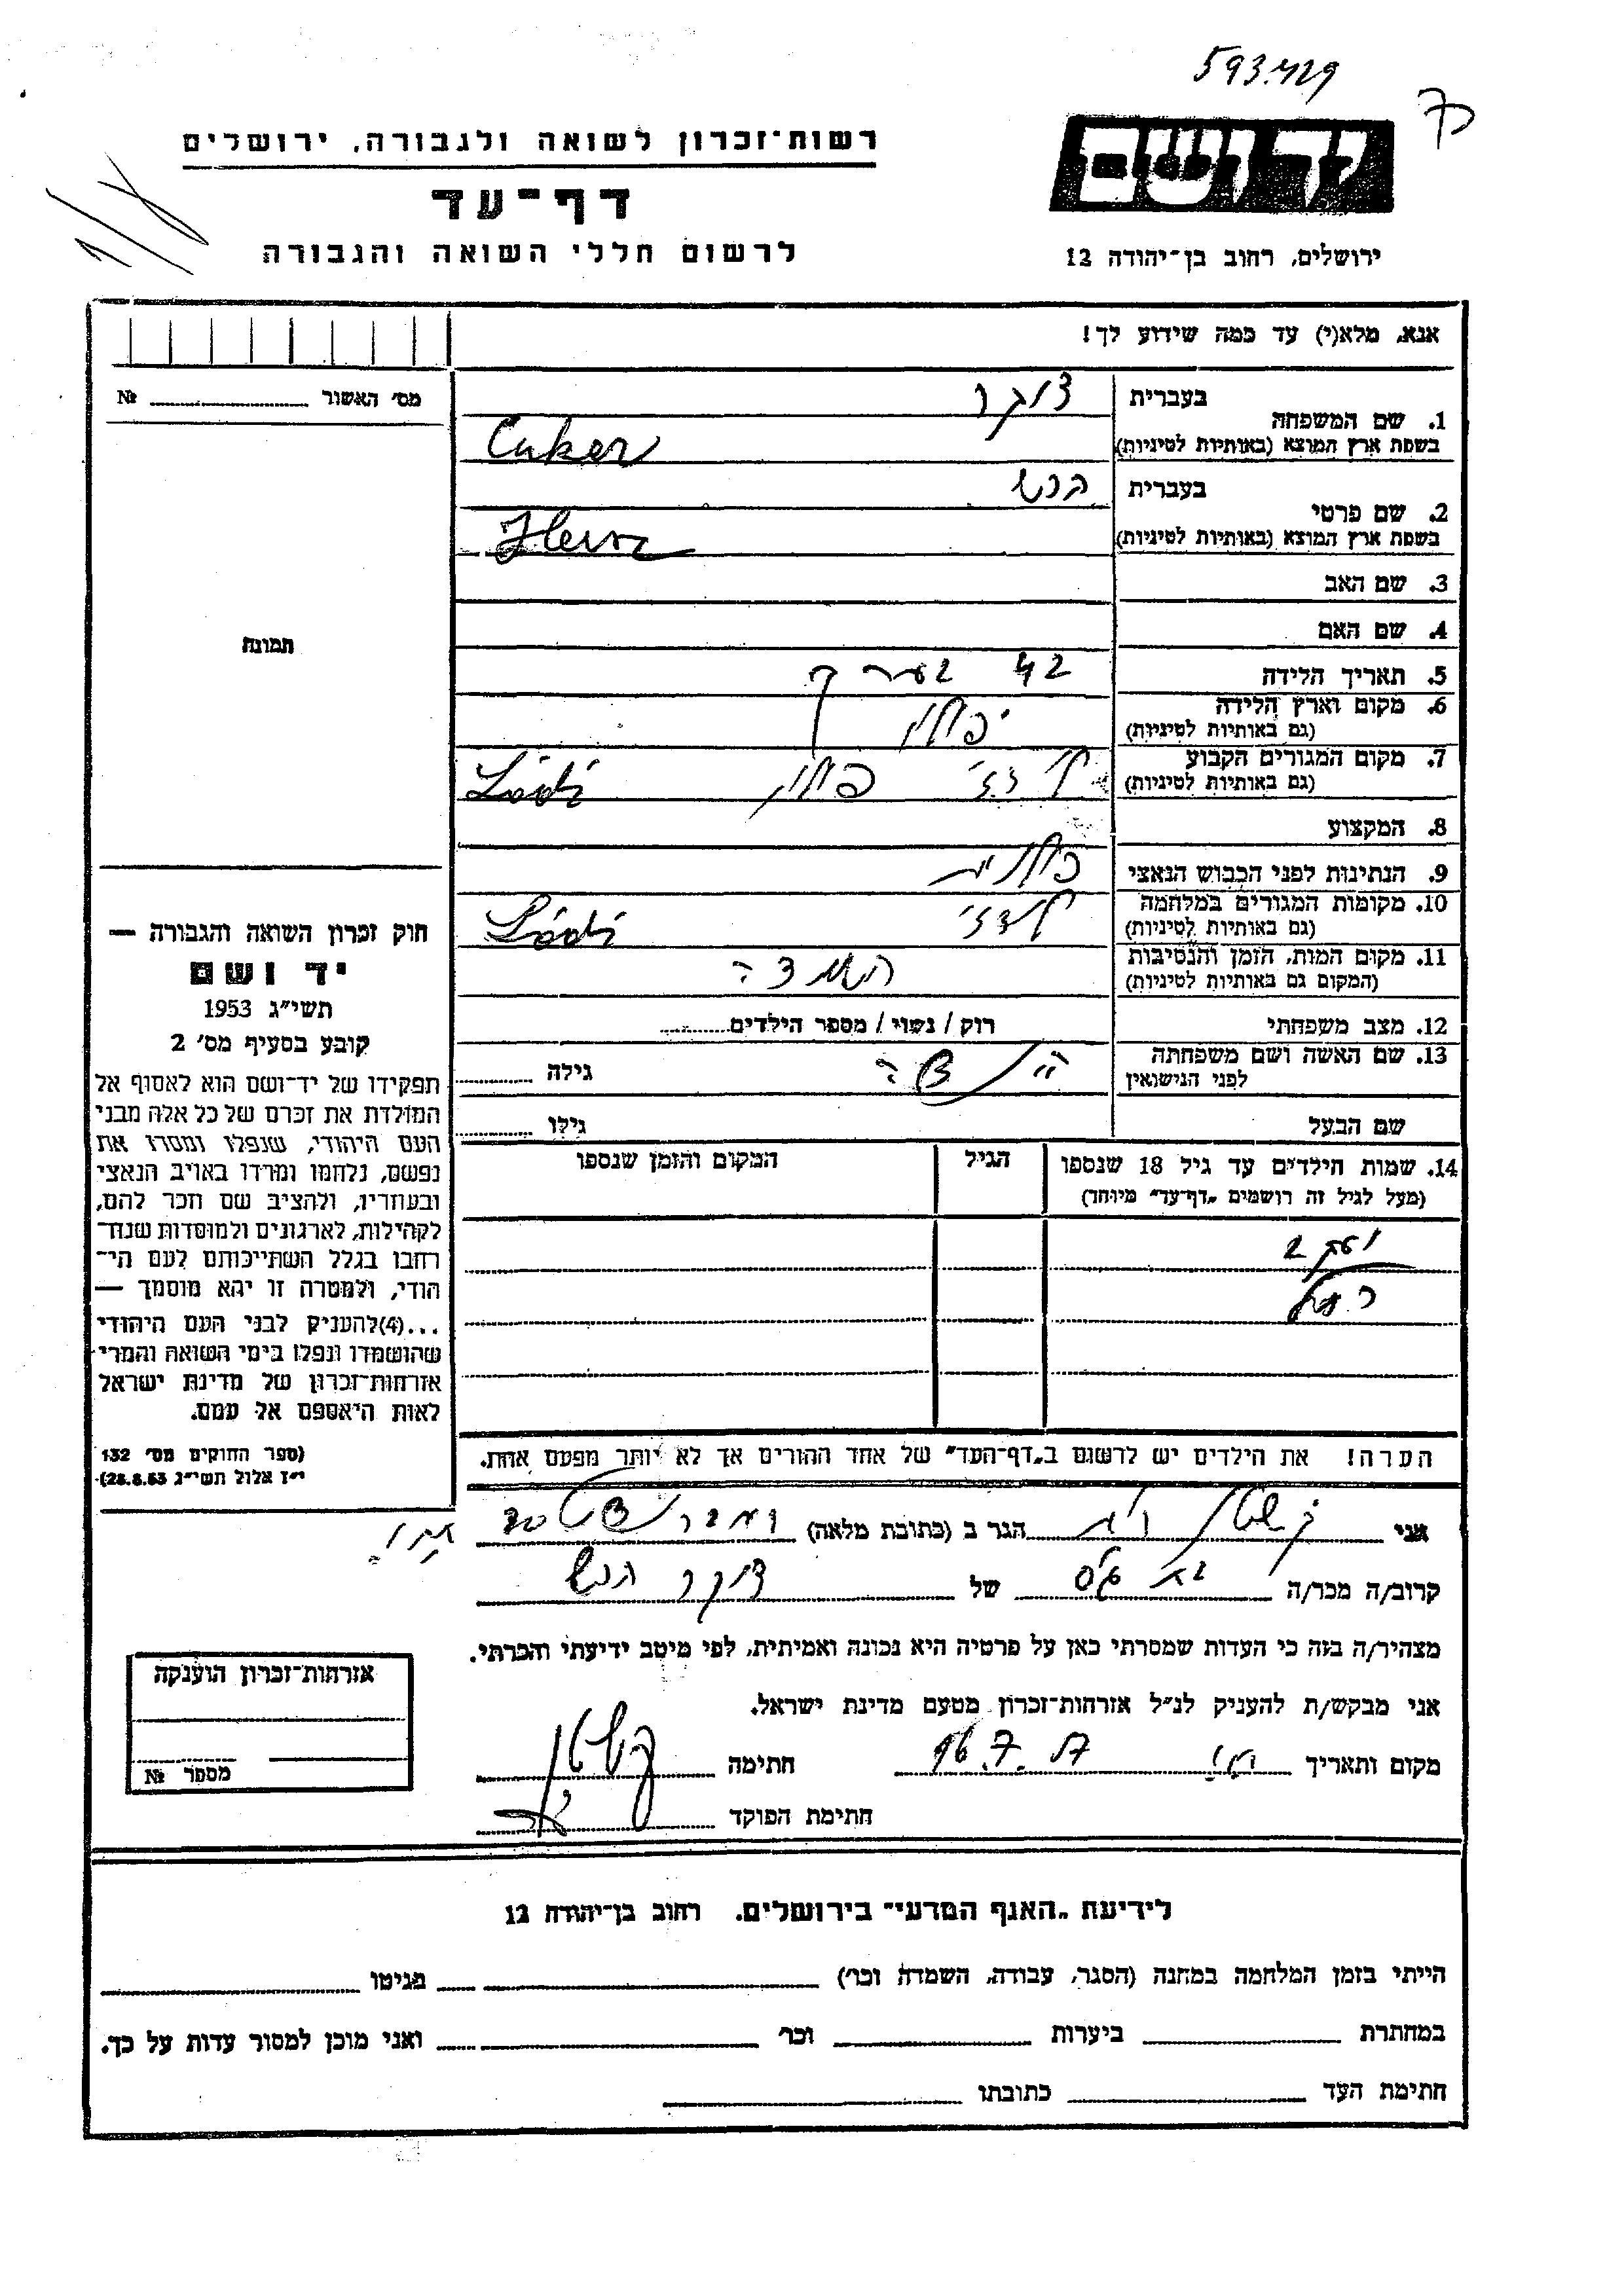 593429
יד ושם
ירושלים, רחוב בן־יהודה 12
רשות־זכרון לשואה ולגבורה, ירושלים
דף־עד
לרשום חללי השואה והגבורה
אנא, מלא(י) עד כמה שידוע לך!
מס' האשור № 
1. שם המשפחה
בעברית צוקר
בשפת ארץ המוצא (באותיות לטיניות) Cuker
2. שם פרטי
בעברית הרש
בשפת ארץ המוצא (באותיות לטיניות) Hersz
3. שם האב
4. שם האם
5. תאריך הלידה 42 בערך
6. מקום וארץ הלידה פולין
(גם באותיות לטיניות)
7. מקום המגורים הקבוע לודז' פולין Łódź
(גם באותיות לטיניות)
8. המקצוע
9. הנתינות לפני הכבוש הנאצי פולנית
10. מקומות המגורים במלחמה לודז' Łódź
(גם באותיות לטיניות)
11. מקום המות, הזמן והנסיבות
(המקום גם באותיות לטיניות)
12. מצב משפחתי רוק / נשוי / מספר הילדים
13. שם האשה ושם משפחתה
לפני הנישואין גילה
שם הבעל גילו
14. שמות הילדים עד גיל 18 שנספו הגיל המקום והזמן שנספו
(מעל לגיל זה רושמים "דף־עד" מיוחד)
יעקב
רחל
הערה! את הילדים יש לרשום ב"דף־העד" של אחד ההורים אך לא יותר מפעם אחת.
תמונה
חוק זכרון השואה והגבורה —
יד ושם
תשי"ג 1953
קובע בסעיף מס' 2
תפקידו של יד־ושם הוא לאסוף אל
המולדת את זכרם של כל אלה מבני
העם היהודי, שנפלו ומסרו את
נפשם, נלחמו ומרדו באויב הנאצי
ובעוזריו, ולהציב שם וזכר להם,
לקהילות, לארגונים ולמוסדות שנח־
רבו בגלל השתייכותם לעם הי־
הודי, ולמטרה זו יהא מוסמך —
...(4) להעניק לבני העם היהודי
שהושמדו ונפלו בימי השואה והמרי
אזרחות־זכרון של מדינת ישראל
לאות היאספם אל עמם.
(ספר החוקים מס' 132
י"ז אלול תשי"ג 28.8.53)
אני הגר ב (כתובת מלאה)
קרוב/ה מכר/ה של צוקר הרש
מצהיר/ה בזה כי העדות שמסרתי כאן על פרטיה היא נכונה ואמיתית, לפי מיטב ידיעתי והכרתי.
אני מבקש/ת להעניק לנ"ל אזרחות־זכרון מטעם מדינת ישראל.
מקום ותאריך חתימה
חתימת הפוקד
אזרחות־זכרון הוענקה
מספר №
לידיעת "האגף המדעי" בירושלים, רחוב בן־יהודה 12
הייתי בזמן המלחמה במחנה (הסגר, עבודה, השמדה וכו') בגיטו
במחתרת ביערות וכו' ואני מוכן למסור עדות על כך.
חתימת העד כתובתו